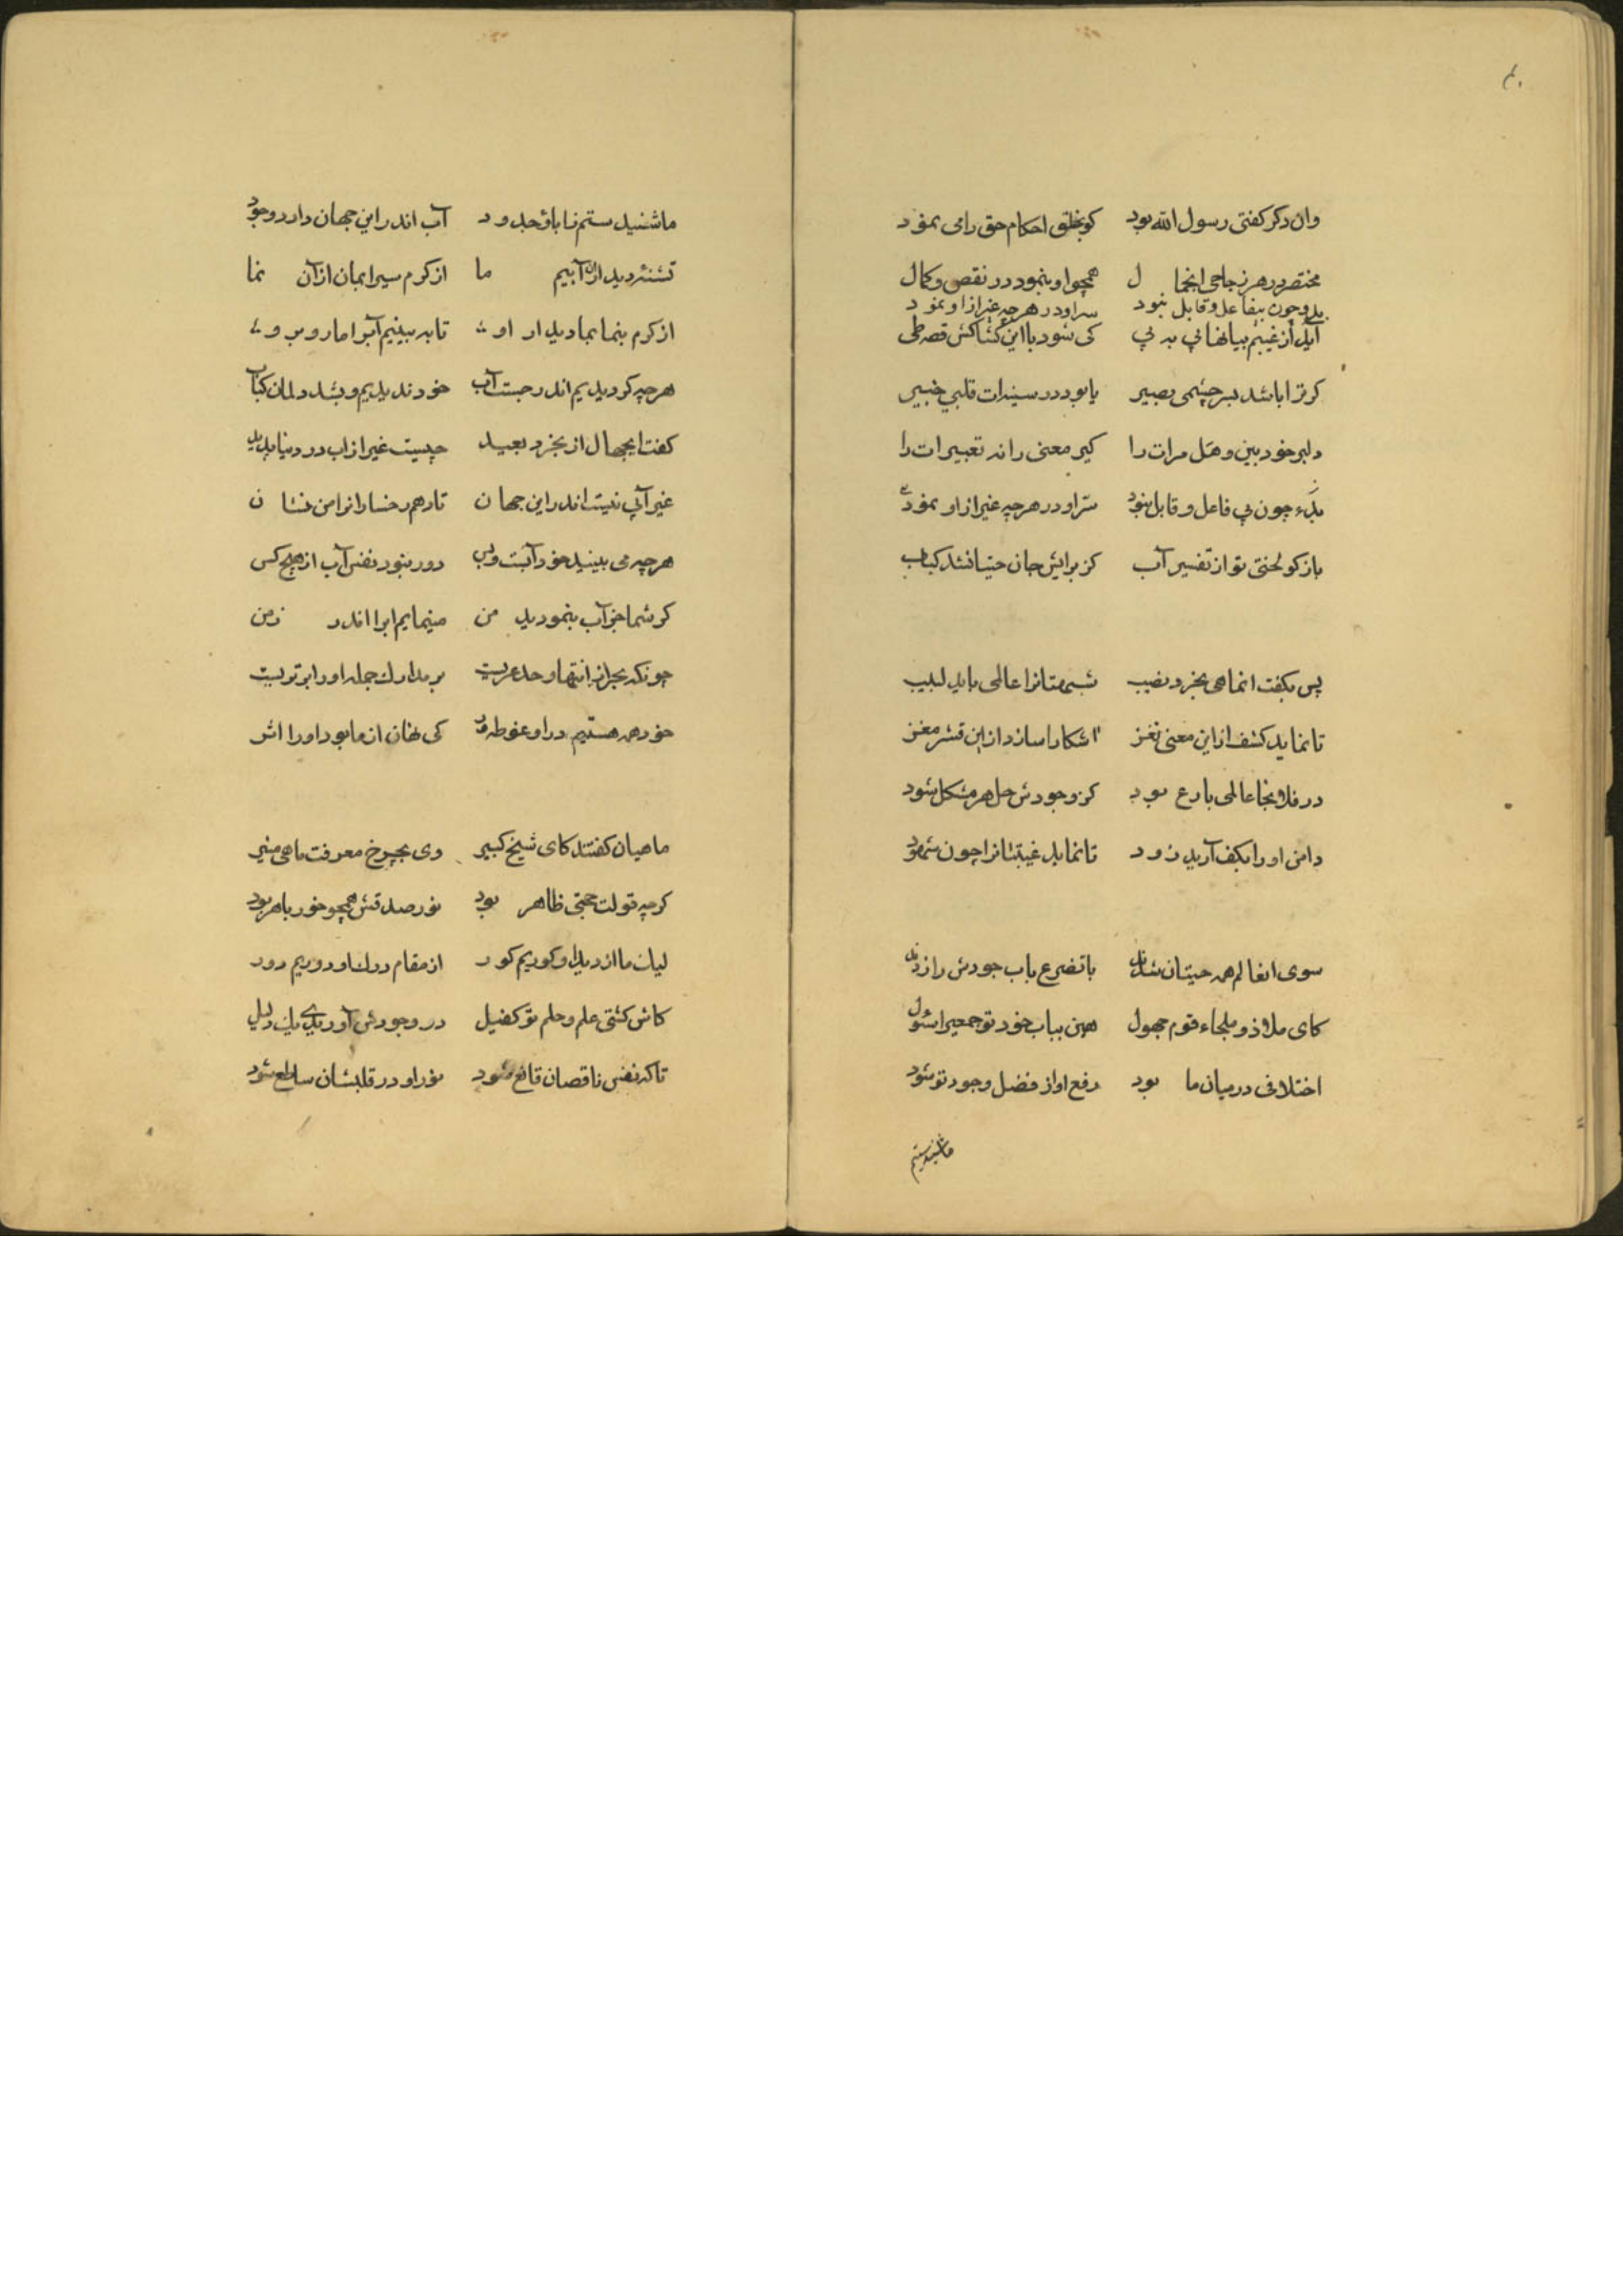 ۴۰
وان دکر کفتی رسول الله بود کو بخلق احکام حق را می نمود
مختصر در هر زجاجی انجمال همچو او بنمود در نقص و کمال
چون بیفاعل و قابل نبود سر او در هر چه غیر از او نمود
آید از غیبم بیانها پی به پی کی شود با این کشاکش قصه طی
کر ترا باشد بسر چشمی بصیر یا بود در سینه ات قلبی خبیر
دلبر خود بین و هل مرات را کیر معنی را نه تعبیرات را
چون بی فاعل و قابل نبود سر او در هر چه غیر از او نمود
باز کو لختی تو از تفسیر آب کز برایش جان حیتانشد کباب
پس بکفت انماهی بحر و نصیب شبهتانرا عالمی باید لبیب
تا نماید کشف از این معنی نغز اشکارا سازد از این قشر مغز
در فلانجا عالمی بارع بود کز وجودش حل هر مشکل شود
دامن او را بکف آرید زود تا نماید غیبتانرا چون شهود
سوی انعالم همه حیتان شدند با تضرع باب جودش را زدند
کای ملاذ و ملجاء قوم جهول هین بباب خود تو جمعیرا
اختلافی در میان ما بود رفع او از فضل وجود تو شود
ماشنیدستم
ماشنیدستم ز اباؤ جدود آب اندر این جهان دارد وجود
تشنه دیدار آبیم ما از کرم سیرابمان از آن نما
از کرم بنما بما دیدار او تا به بینیم آبرا ما رو برو
هر چه کردیدیم اندر جست آب خود ندیدیم و بشد دلمان کباب
کفت ایجهال از بحرد بعید چیست غیر از اب در دنیا پدید
غیر آبی نیست اندر این جهان تا دهم رخسارانرا من نشان
هر چه می بینید خود آبست و بس دور نبود نفس آب از هیچ کس
کر شما جز آب بنمودید من مینمایم ابرا اندر زمن
چونکه بحرانرا انتها و حد عریست بر مدارک جمله او را برتریست
خود همه هستیم در او غوطه ور کی نهان از ما بود او را اثر
ماهیان کفتند کای شیخ کبیر وی بچرخ معرفت ماهی منیر
کر چه قولت حجتی ظاهر بود نور صدقش همچو خور باهر بود
لیک ما از دید او کوریم کور از مقام درک او دوریم دور
کاش کشتی علم و حلم تو کفیل در وجودش آوریدی یک دلیل
تا که نفس ناقصان قانع شود نور او در قلبشان ساطع شود